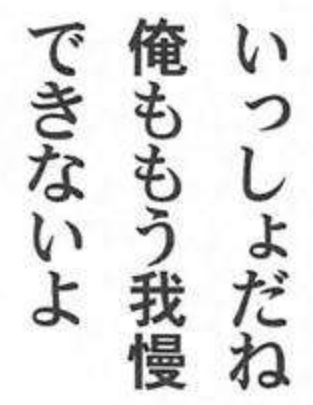 いっしょだね
俺ももう我慢
できないよ